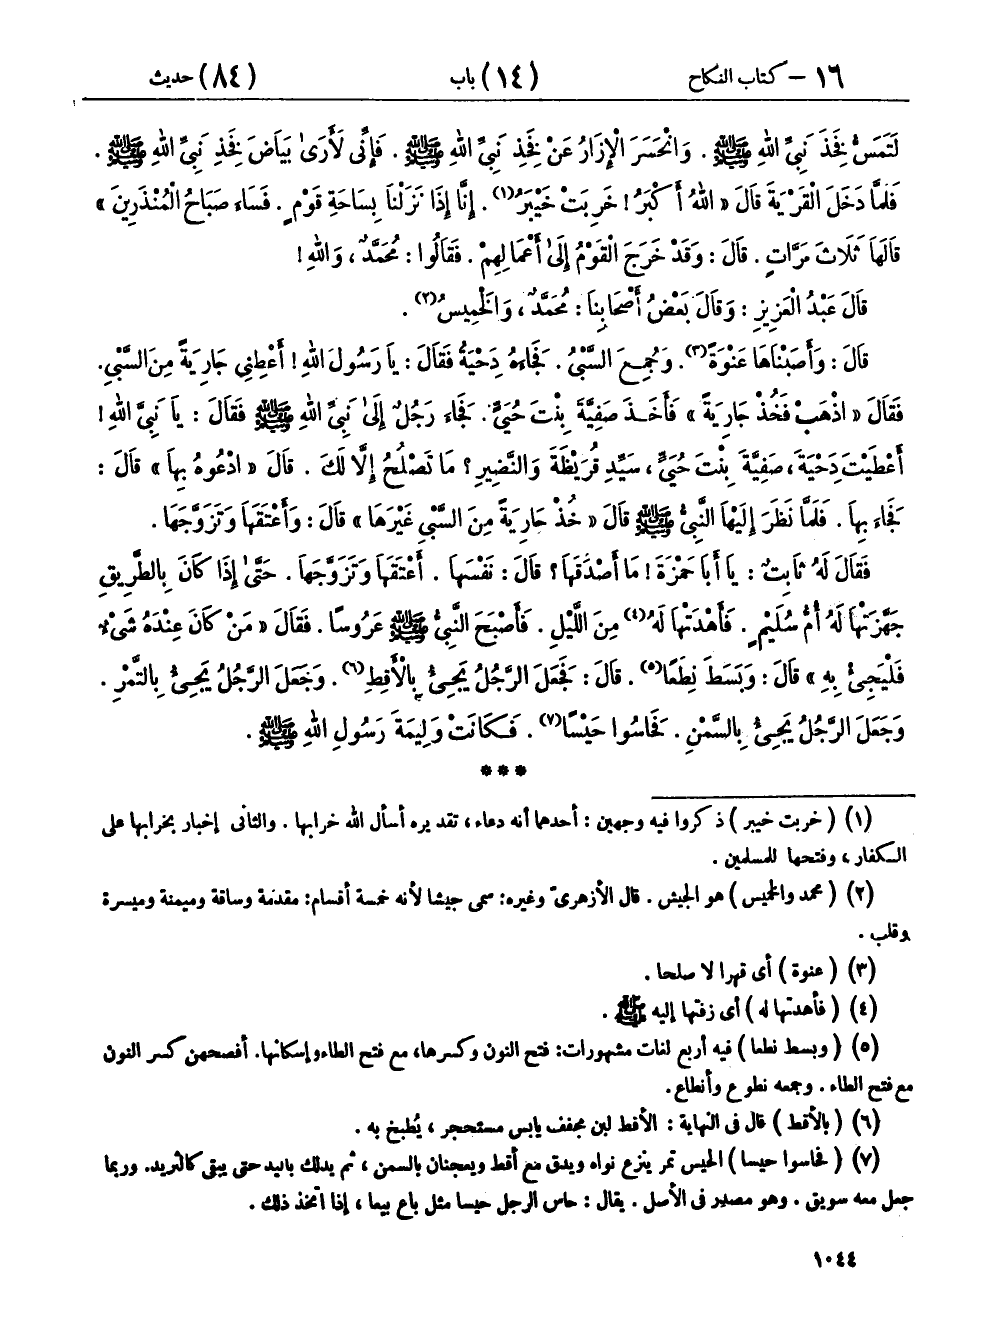 ١٦ – كتاب النكاح (١٤) باب (٨٤) حديث
لَتَمَسُّ فَخِذَ نَبِيِّ اللهِ ﷺ . وَانْحَسَرَ الْإِزَارُ عَنْ فَخِذِ نَبِيِّ اللهِ ﷺ . فَإِنِّى لَأَرَىٰ بَيَاضَ فَخِذِ نَبِيِّ اللهِ ﷺ .
فَلَمَّا دَخَلَ الْقَرْيَةَ قَالَ « اللهُ أَكْبَرُ ! خَرِبَتْ خَيْبَرُ(١) . إِنَّا إِذَا نَزَلْنَا بِسَاحَةِ قَوْمٍ . فَسَاءَ صَبَاحُ الْمُنْذَرِينَ »
قَالَهَا ثَلَاثَ مَرَّاتٍ . قَالَ : وَقَدْ خَرَجَ الْقَوْمُ إِلَىٰ أَعْمَالِهِمْ . فَقَالُوا : مُحَمَّدٌ ، وَاللهِ !
قَالَ عَبْدُ الْعَزِيزِ : وَقَالَ بَعْضُ أَصْحَابِنَا : مُحَمَّدٌ ، وَالْخَمِيسُ(٢) .
قَالَ : وَأَصَبْنَاهَا عَنْوَةً(٣) . وَجُمِعَ السَّبْىُ . فَجَاءَهُ دِحْيَةُ فَقَالَ : يَا رَسُولَ اللهِ ! أَعْطِنِي جَارِيَةً مِنَ السَّبْىِ .
فَقَالَ « اذْهَبْ فَخُذْ جَارِيَةً » فَأَخَذَ صَفِيَّةَ بِنْتَ حُيَىٍّ . فَجَاءَ رَجُلٌ إِلَىٰ نَبِيِّ اللهِ ﷺ فَقَالَ : يَا نَبِيَّ اللهِ !
أَعْطَيْتَ دِحْيَةَ ، صَفِيَّةَ بِنْتَ حُيَىٍّ ، سَيِّدِ قُرَيْظَةَ وَالنَّضِيرِ ؟ مَا تَصْلُحُ إِلَّا لَكَ . قَالَ « ادْعُوهُ بِهَا » قَالَ :
فَجَاءَ بِهَا . فَلَمَّا نَظَرَ إِلَيْهَا النَّبِيُّ ﷺ قَالَ « خُذْ جَارِيَةً مِنَ السَّبْىِ غَيْرَهَا » قَالَ : وَأَعْتَقَهَا وَتَزَوَّجَهَا .
فَقَالَ لَهُ ثَابِتٌ : يَا أَبَا حَمْزَةَ ! مَا أَصْدَقَهَا ؟ قَالَ : نَفْسَهَا . أَعْتَقَهَا وَتَزَوَّجَهَا . حَتَّىٰ إِذَا كَانَ بِالطَّرِيقِ
جَهَّزَتْهَا لَهُ أُمُّ سُلَيْمٍ . فَأَهْدَتْهَا لَهُ(٤) مِنَ اللَّيْلِ . فَأَصْبَحَ النَّبِيُّ ﷺ عَرُوسًا . فَقَالَ « مَنْ كَانَ عِنْدَهُ شَىْءٌ
فَلْيَجِئْ بِهِ » قَالَ : وَبَسَطَ نِطَعًا(٥) . قَالَ : فَجَعَلَ الرَّجُلُ يَجِىءُ بِالْأَقِطِ(٦) . وَجَعَلَ الرَّجُلُ يَجِىءُ بِالتَّمْرِ .
وَجَعَلَ الرَّجُلُ يَجِىءُ بِالسَّمْنِ . فَحَاسُوا حَيْسًا(٧) . فَكَانَتْ وَلِيمَةَ رَسُولِ اللهِ ﷺ .
***
(١) ( خربت خيبر ) ذكروا فيه وجهين : أحدهما أنه دعاء ، تقديره أسأل الله خرابها . والثانى إخبار بخرابها على
الكفار ، وفتحها للمسلمين .
(٢) ( محمد والخميس ) هو الجيش . قال الأزهرىّ وغيره : سمى جيشا لأنه خمسة أقسام : مقدمة وساقة وميمنة وميسرة
وقلب .
(٣) ( عنوة ) أى قهرا لا صلحا .
(٤) ( فأهدتها له ) أى زفتها إليه ﷺ .
(٥) ( وبسط نطعا ) فيه أربع لغات مشهورات : فتح النون وكسرها ، مع فتح الطاء وإسكانها . أفصحهن كسر النون
مع فتح الطاء . وجمعه نطوع وأنطاع .
(٦) ( بالأقط ) قال فى النهاية : الأقط لبن مجفف يابس مستحجر ، يُطبخ به .
(٧) ( فحاسوا حيسا ) الحيس تمر ينزع نواه ويدق مع أقط ويعجنان بالسمن ، ثم يدلك باليد حتى يبقى كالثريد . وربما
جعل معه سويق . وهو مصدر فى الأصل . يقال : حاس الرجل حيسا مثل باع بيعا ، إذا اتخذ ذلك .
١٠٤٤